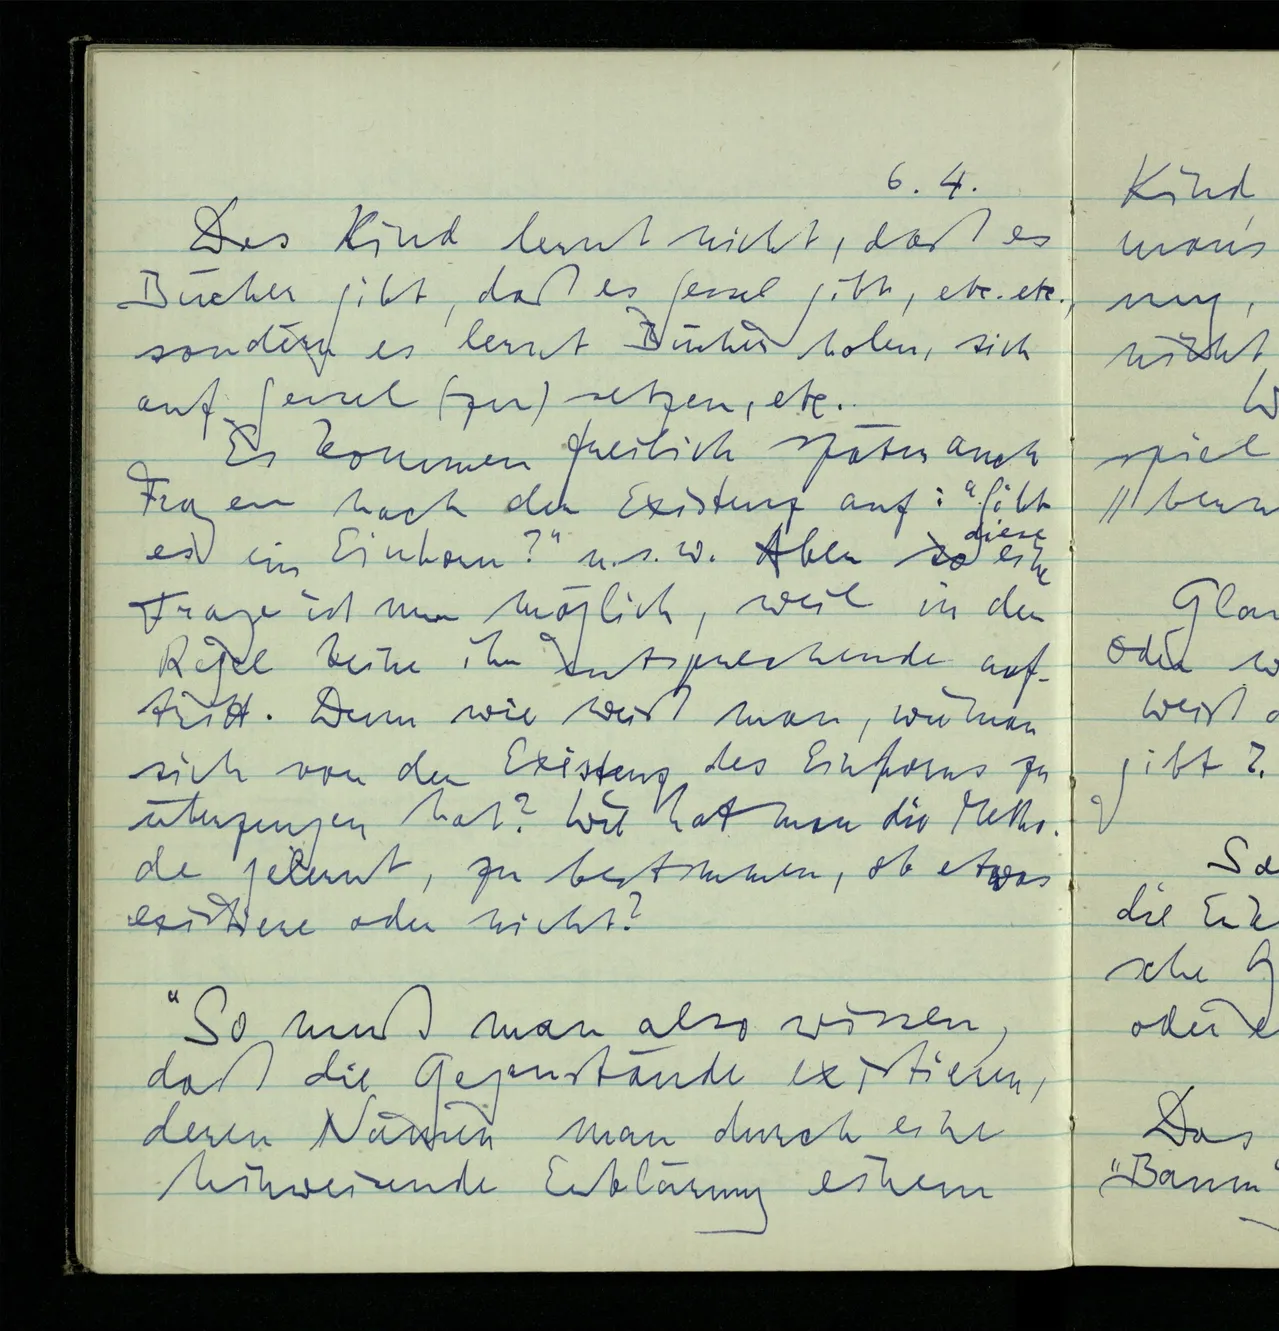 6. 4.
Das Kind lernt nicht, daß es
Bücher gibt, daß es Sessel gibt, etc. etc.,
sondern es lernt Bücher holen, sich
auf Sessel (zu) setzen, etc.
Es kommen freilich später auch
Fragen nach der Existenz auf: "Gibt
es ein Einhorn?" u.s.w. Aber so eine
diese
Frage ist nur möglich, weil in der
Regel keine ihr entsprechende auf-
tritt. Denn wie weiß man, wie man
sich von der Existenz des Einhorns zu
überzeugen hat? Wie hat man die Metho-
de gelernt, zu bestimmen, ob etwas
existiere oder nicht?
"So muß man also wissen,
daß die Gegenstände existieren,
deren Namen man durch eine
hinweisende Erklärung einem
Kind
man's
nicht
spiel
oder
weiß
gibt?
die
sche
oder
Das
"Baum"